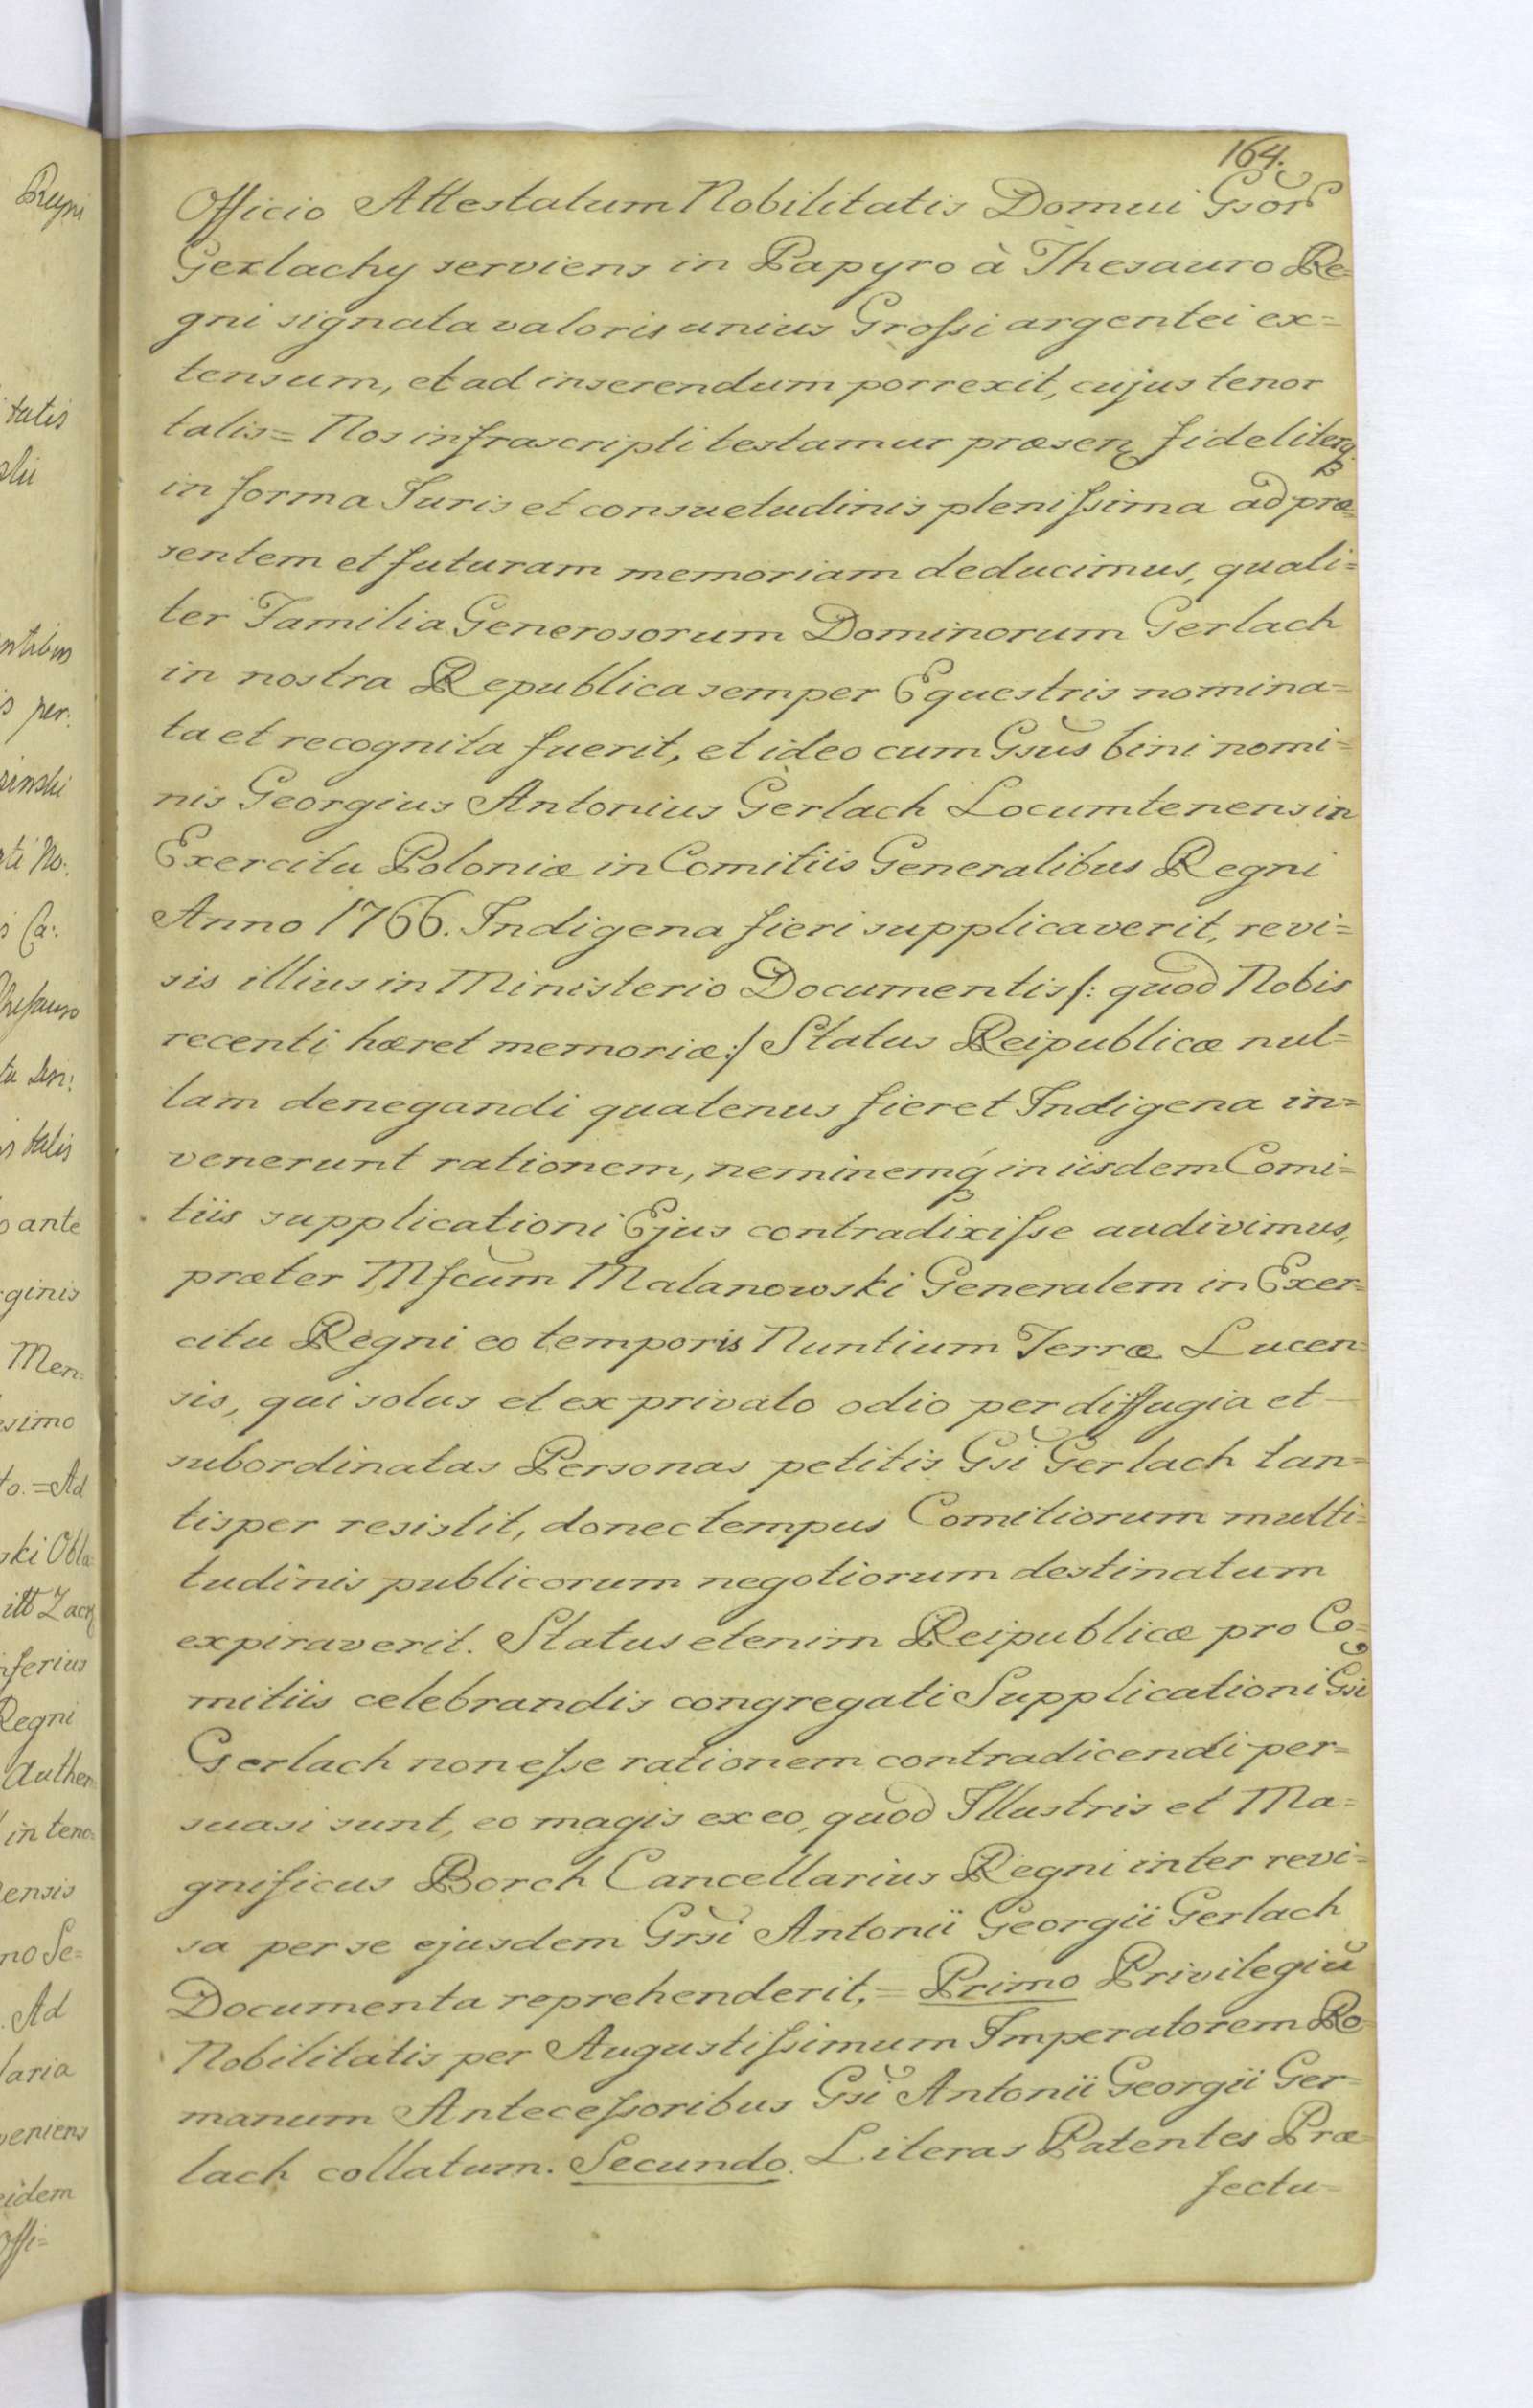 164.
Officio Attestatum Nobilitatis Domui Gsorͫ
Gerlachy serviens in Papyro à Thesauro Re=
gni signata valoris unius Groſsi argentei ex=
tensum, et ad inserendum porrexit, cujus tenor
talis= Nos infrascripti testamur præsenꝫ fideliterq́
in forma Juris et consuetudinis pleniſsima ad præ=
sentem et futuram memoriam deducimus, quali=
ter Familia Generosorum Dominorum Gerlach
in nostra Republica semper Equestris nomina=
ta et recognita fuerit, et ideo cum Gsus bini nomi=
nis Georgius Antonius Gerlach Locumtenens in
Exercitu Poloniæ in Comitiis Generalibus Regni
Anno 1766. Indigena fieri supplicaverit, revi=
sis illius in Ministerio Documentis /: quod Nobis
recenti hæret memoriæ :/ Status Reipublicæ nul=
lam denegandi quatenus fieret Indigena in=
venerunt rationem, neminemq́ in iisdem Comi=
tiis supplicationi Ejus contradixiſse audivimus,
præter Mfcum Malanowski Generalem in Exer=
citu Regni eo temporis Nuntium Terræ Lucen=
sis, qui solus et ex privato odio per diffugia et
subordinatas Personas petitis Gsi Gerlach tan=
tisper resistit, donec tempus Comitiorum multi=
tudinis publicorum negotiorum destinatum
expiraverit. Status etenim Reipublicæ pro Co=
mitiis celebrandis congregati Supplicationi Gsi
Gerlach non eſse rationem contradicendi per=
suasi sunt, eo magis ex eo, quod Illustris et Ma=
gnificus Borch Cancellarius Regni inter revi=
sa per se ejusdem Grsi Antonii Georgii Gerlach
Documenta reprehenderit.= Primo Privilegiū
Nobilitatis per Augustiſsimum Imperatorem Ro=
manum Anteceſsoribus Gsi Antonii Georgii Ger=
lach collatum. Secundo. Literas Patentes Præ=
fectu=